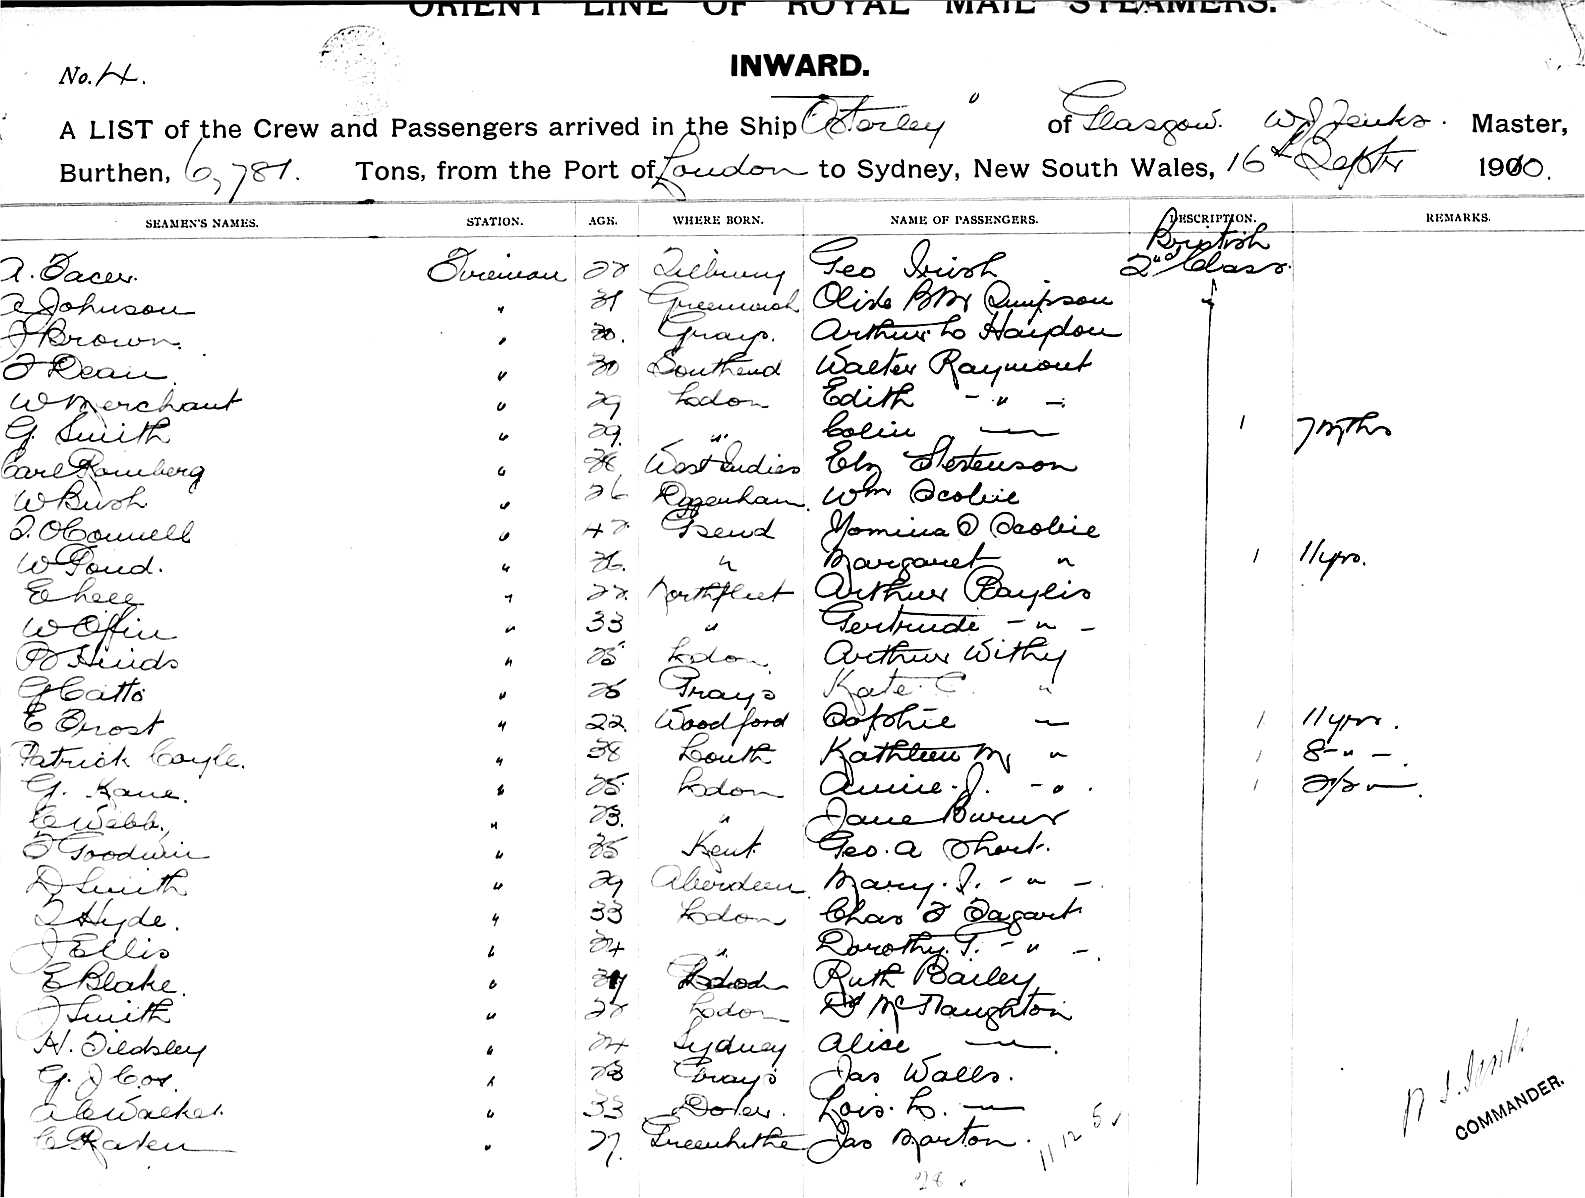 ORIENT LINE OF ROYAL MAIL STEAMERS.
INWARD.
No. 4.
A LIST of the Crew and Passengers arrived in the Ship Osterley " of Glasgow. W J Jenks. Master,
Burthen, 6,781. Tons, from the Port of London to Sydney, New South Wales, 16th Septr 1910.
SEAMEN'S NAMES. STATION. AGE. WHERE BORN. NAME OF PASSENGERS. DESCRIPTION. REMARKS.
British
Fireman 22 Tilbury Geo Irish 2nd Class.
Johnson " 31 Greenwich Olive
J Brown. " 20. Grays. Arthur Lo Haydon
F Dean. " 30 Southend Walter Raymont
W Merchant " 29 Ldon Edith - " -
G. Smith " 29. " Colin — 1 7 Mths
Carl Romberg " West Indies Elz Stevenson
W Bush " 26 Wm Scobie
O'Connell " 42 Gsend Scobie
W Pond. " 26. " Margaret " 1 11 yrs.
" 22 Northfleet Arthur Baylis
W Offin " 33 " Gertrude - " -
Hinds " 25 Ldon. Arthur Withy
G Catto " 25 Grays Kate C. "
E Frost " 22. Woodford Sophie — 1 11 yrs.
Patrick Coyle. " 38 Louth Kathleen M. " 1 8 - " -
G. Kane. " 25 Ldon Annie J. - " . 1
C Webb. " 23. " Jane
F Goodwin " 25 Kent Geo. A Short.
D Smith " 29 Aberdeen Mary. J. - " -
Hyde. " 33 Ldon Chas F Tagart
J Ellis " 24 " Dorothy. T. - " -
E Blake. " Ldon Ruth Bailey
J Smith " 22 Ldon McNaughton
H. Tildsley " 24 Sydney Alice —.
G. J Cox. " 23 Grays Jas Walls.
" 33 Dover. Lois. L. —
C Raven " 27. Greenhithe Jas Barton.
11 12 5
28
COMMANDER.